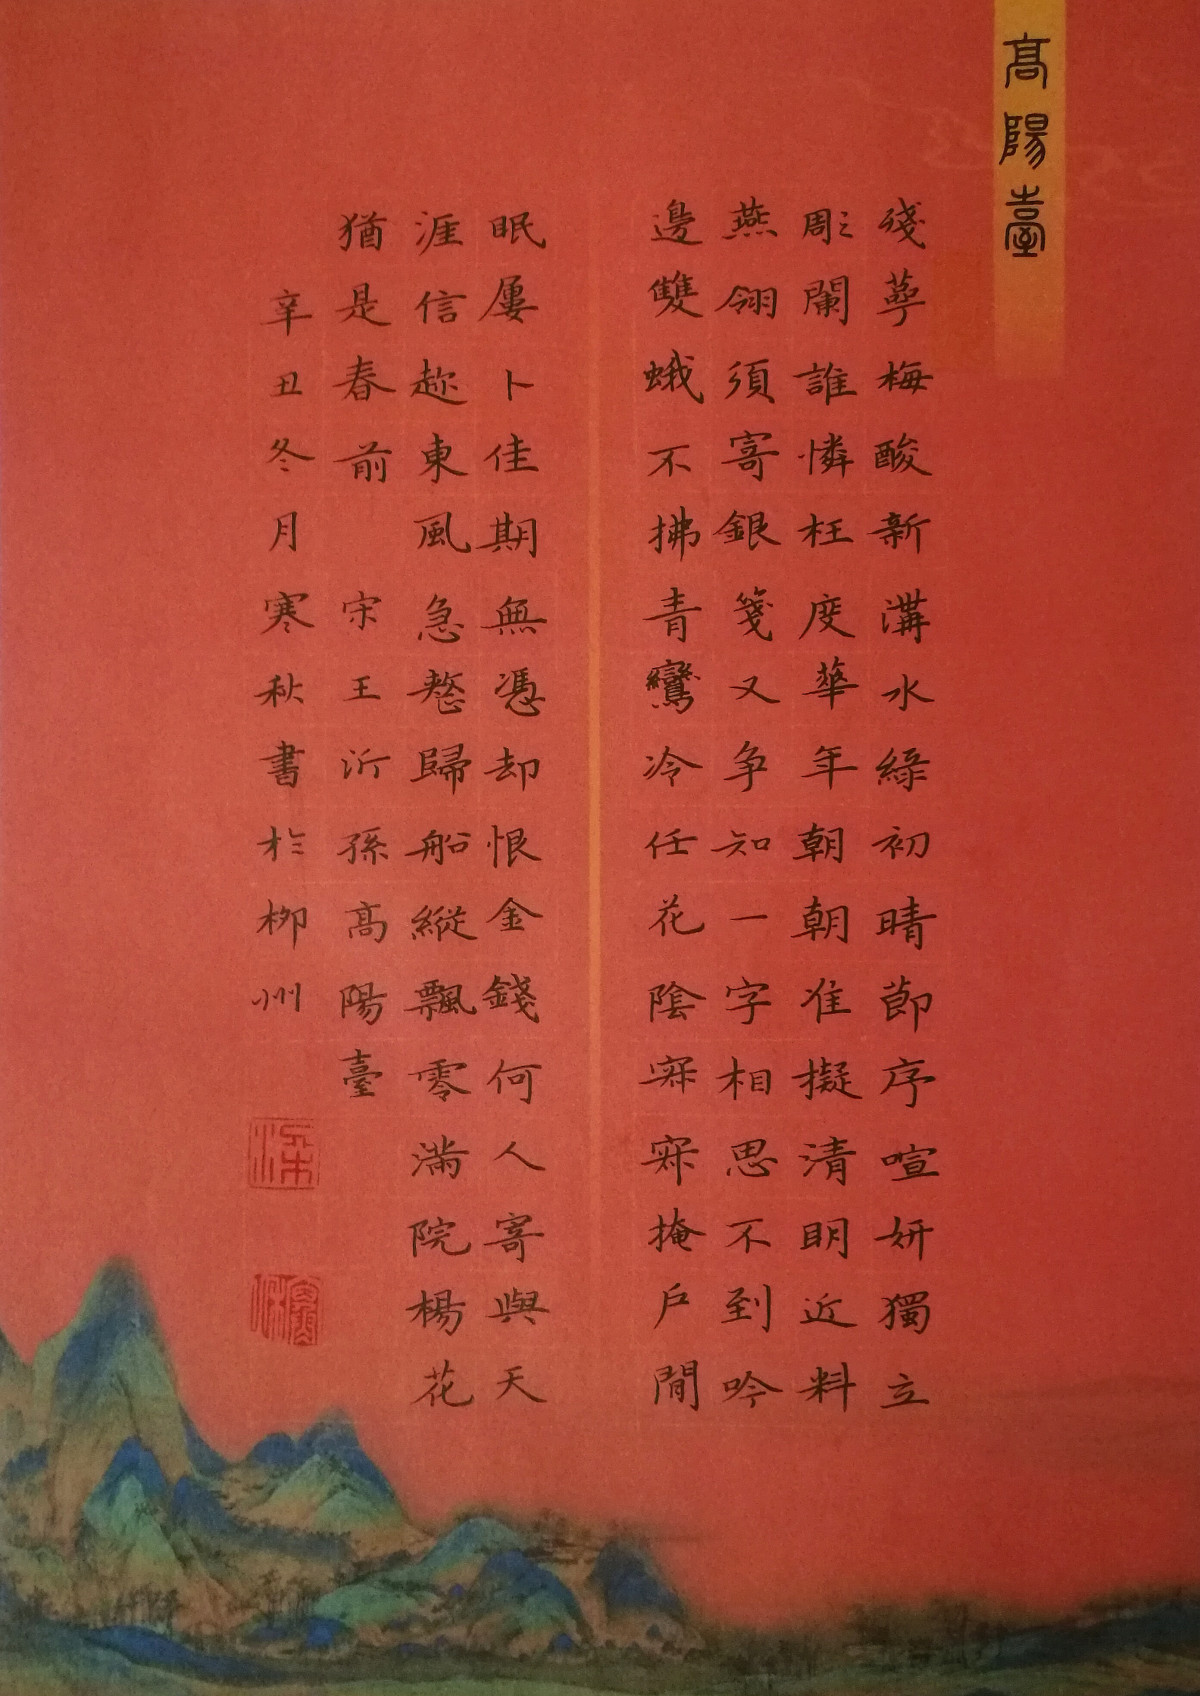 高陽臺
殘萼梅酸新溝水綠初晴節序喧妍獨立
彫闌誰憐枉度華年朝朝准擬清明近料
燕翎須寄銀箋又争知一字相思不到吟
邊雙蛾不拂青鸞冷任花陰寂寂掩戶閒
眠屢卜佳期無憑却恨金錢何人寄與天
涯信趂東風急整歸船縱飄零滿院楊花
猶是春前 宋王沂孫高陽臺
辛丑冬月寒秋書於柳州